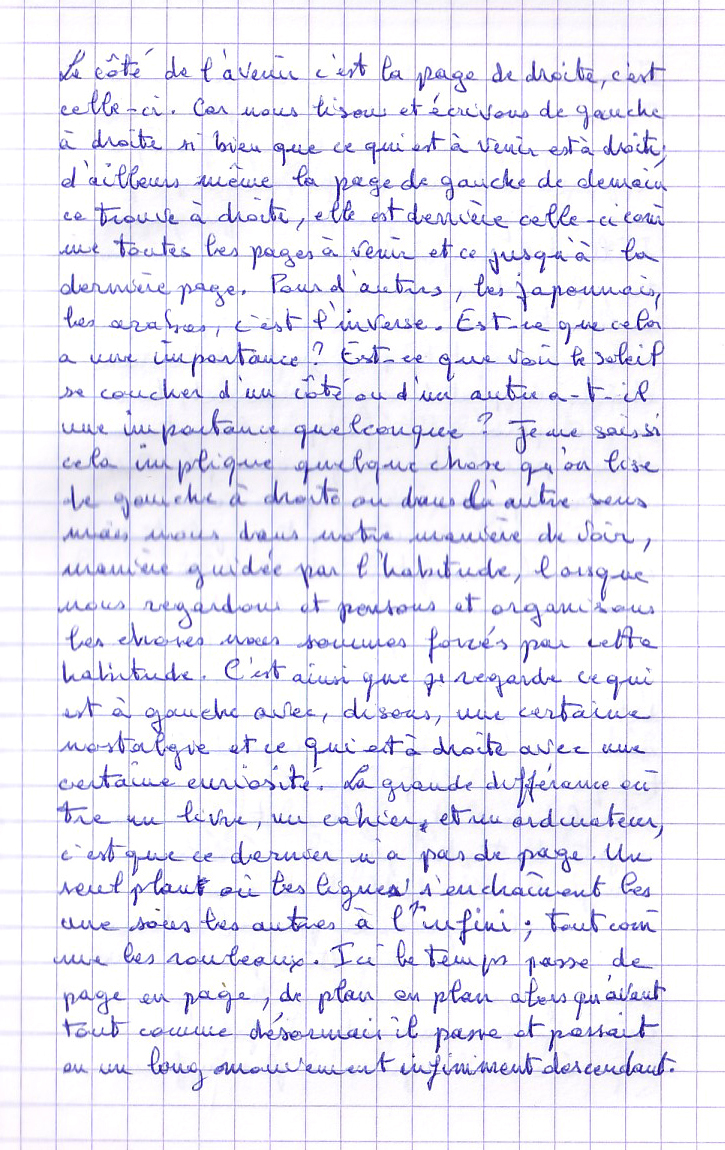 Le côté de l'avenir c'est la page de droite, c'est
celle-ci. Car nous lisons et écrivons de gauche
à droite si bien que ce qui est à venir est à droite;
d'ailleurs même la page de gauche de demain
ce trouve à droite, elle est derrière celle-ci com
me toutes les pages à venir et ce jusqu'à la
dernière page. Pour d'autres, les japonnais,
les arabes, c'est l'inverse. Est-ce que cela
a une importance? Est-ce que voir le soleil
se coucher d'un côté ou d'un autre a-t-il
une importance quelconque? Je ne sais si
cela implique quelque chose qu'on lise
de gauche à droite ou dans l'autre sens
mais nous dans notre manière de voir,
manière guidée par l'habitude, lorsque
nous regardons et pensons et organisons
les choses nous sommes forcés par cette
habitude. C'est ainsi que je regarde ce qui
est à gauche avec, disons, une certaine
nostalgie et ce qui est à droite avec une
certaine curiosité. La grande différance en
tre un livre, un cahier, et un ordinateur,
c'est que ce dernier n'a pas de page. Un
seul plan où les lignes s'enchaînent les
une sous les autres à l'infini; tout com
me les rouleaux. Ici le temps passe de
page en page, de plan en plan alors qu'avant
tout comme désormais il passe et passait
en un long mouvement infiniment descendant.